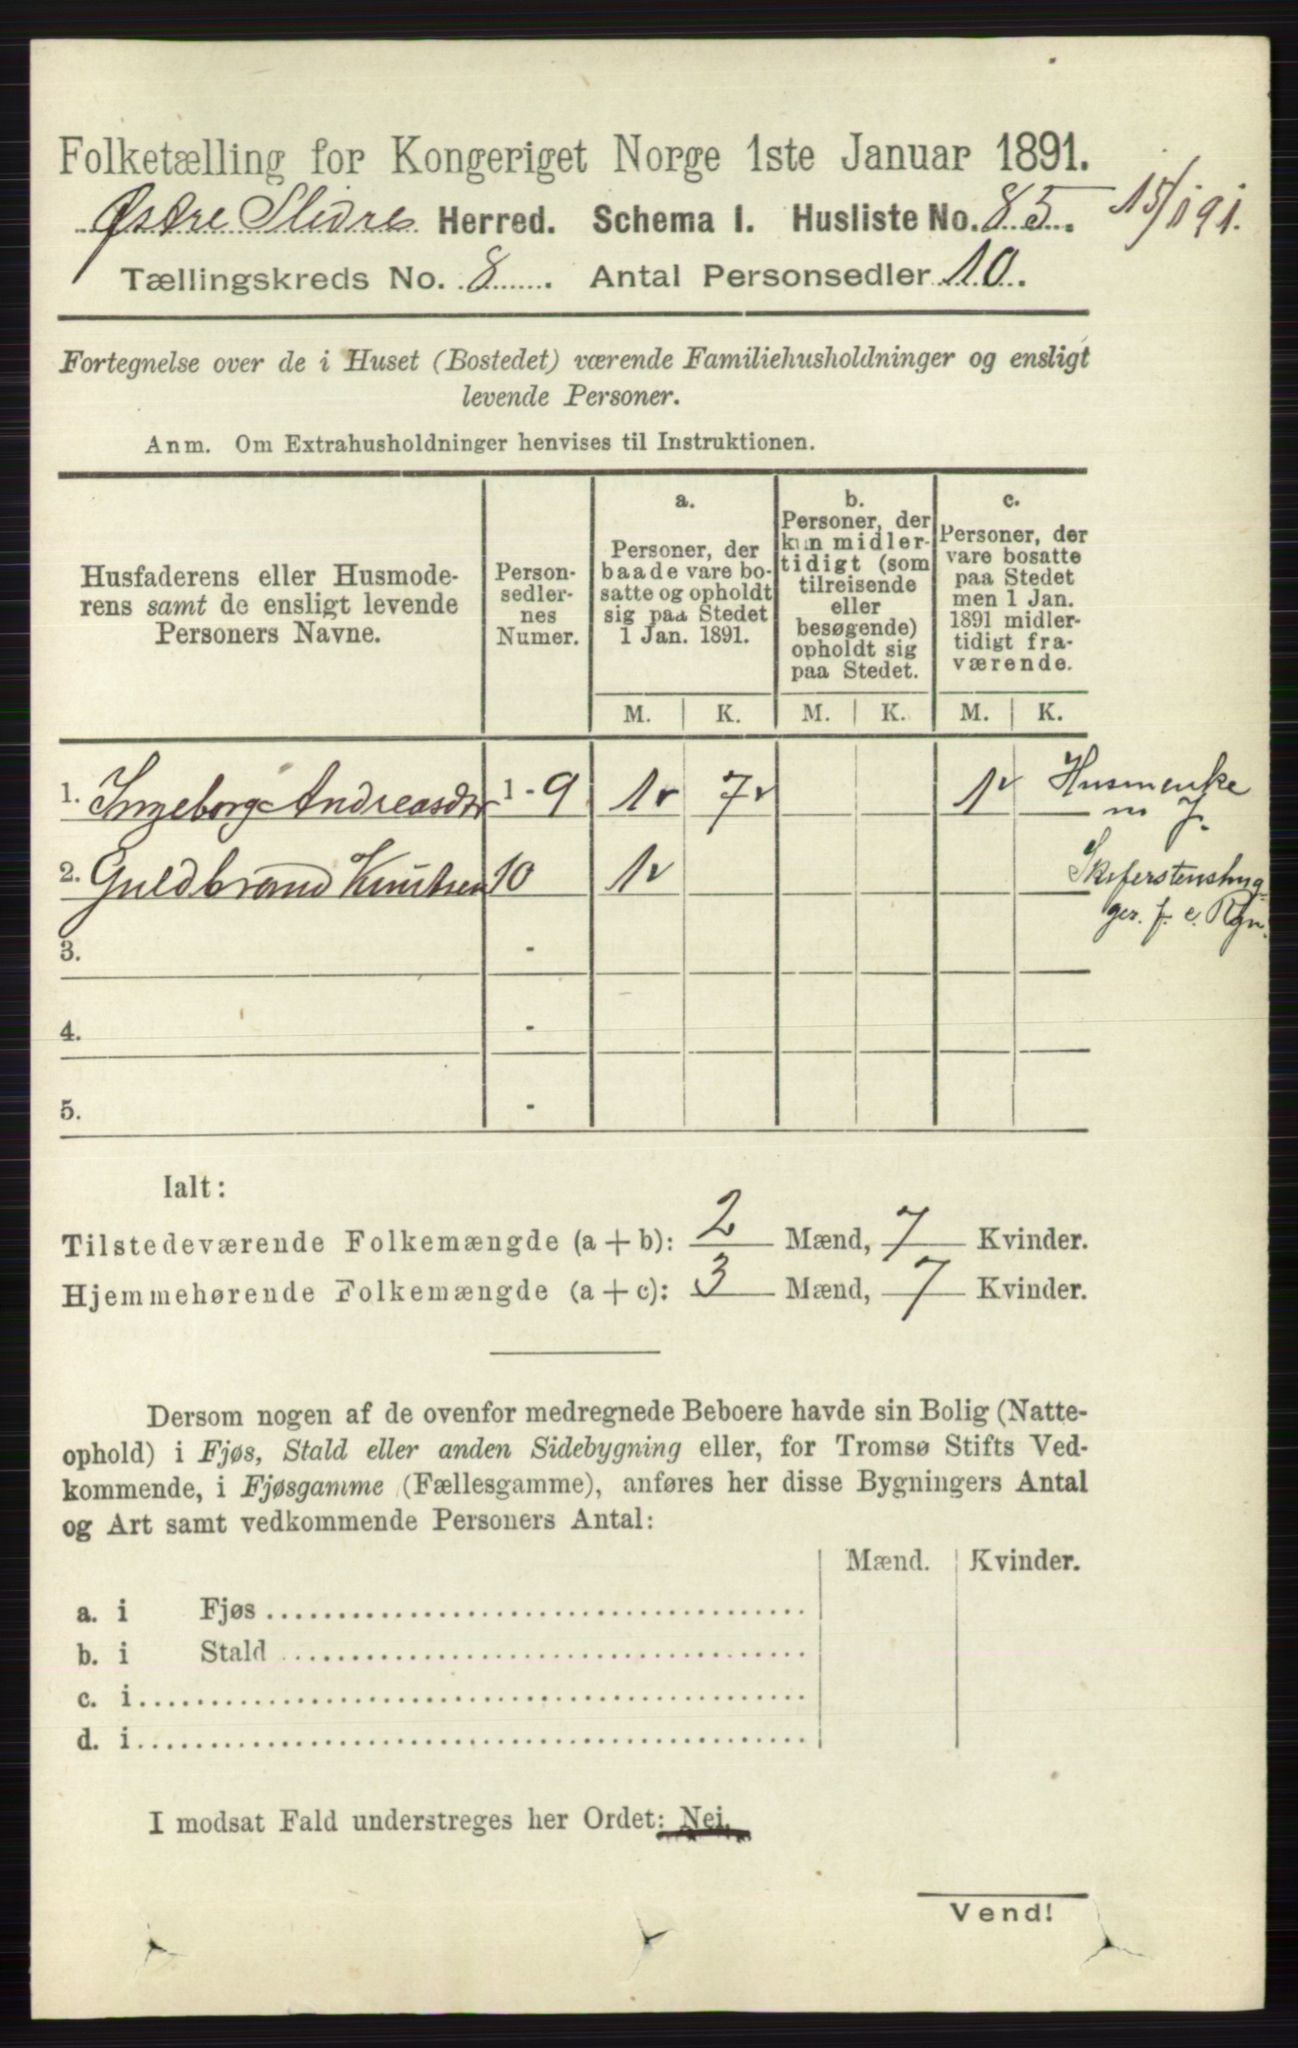 Folketælling for Kongeriget Norge 1ste Januar 1891.
Østre Slidre Herred. Schema I. Husliste No. 85. 15/1 91.
Tællingskreds No. 8. Antal Personsedler 10.
Fortegnelse over de i Huset (Bostedet) værende Familiehusholdninger og ensligt
levende Personer.
Anm. Om Extrahusholdninger henvises til Instruktionen.
Husfaderens eller Husmode-
rens samt de ensligt levende
Personers Navne.
Person-
sedler-
nes
Numer.
a.
Personer, der
baade vare bo-
satte og opholdt
sig paa Stedet
1 Jan. 1891.
b.
Personer, der
kun midler-
tidigt (som
tilreisende
eller
besøgende)
opholdt sig
paa Stedet.
c.
Personer, der
vare bosatte
paa Stedet
men 1 Jan.
1891 midler-
tidigt fra-
værende.
M. K. M. K. M. K.
1. Ingeborg Andreasdtr 1 - 9 1 7 1 Husmenke
m J.
2. Guldbrand Knutsen 10 1 Skiferstenshug-
ger. f. e. Rgn.
3. -
4. -
5. -
Ialt:
Tilstedeværende Folkemængde (a + b): 2 Mænd, 7 Kvinder.
Hjemmehørende Folkemængde (a + c): 3 Mænd, 7 Kvinder.
Dersom nogen af de ovenfor medregnede Beboere havde sin Bolig (Natte-
ophold) i Fjøs, Stald eller anden Sidebygning eller, for Tromsø Stifts Ved-
kommende, i Fjøsgamme (Fællesgamme), anføres her disse Bygningers Antal
og Art samt vedkommende Personers Antal:
Mænd. Kvinder.
a. i Fjøs
b. i Stald
c. i
d. i
I modsat Fald understreges her Ordet: Nei.
Vend!